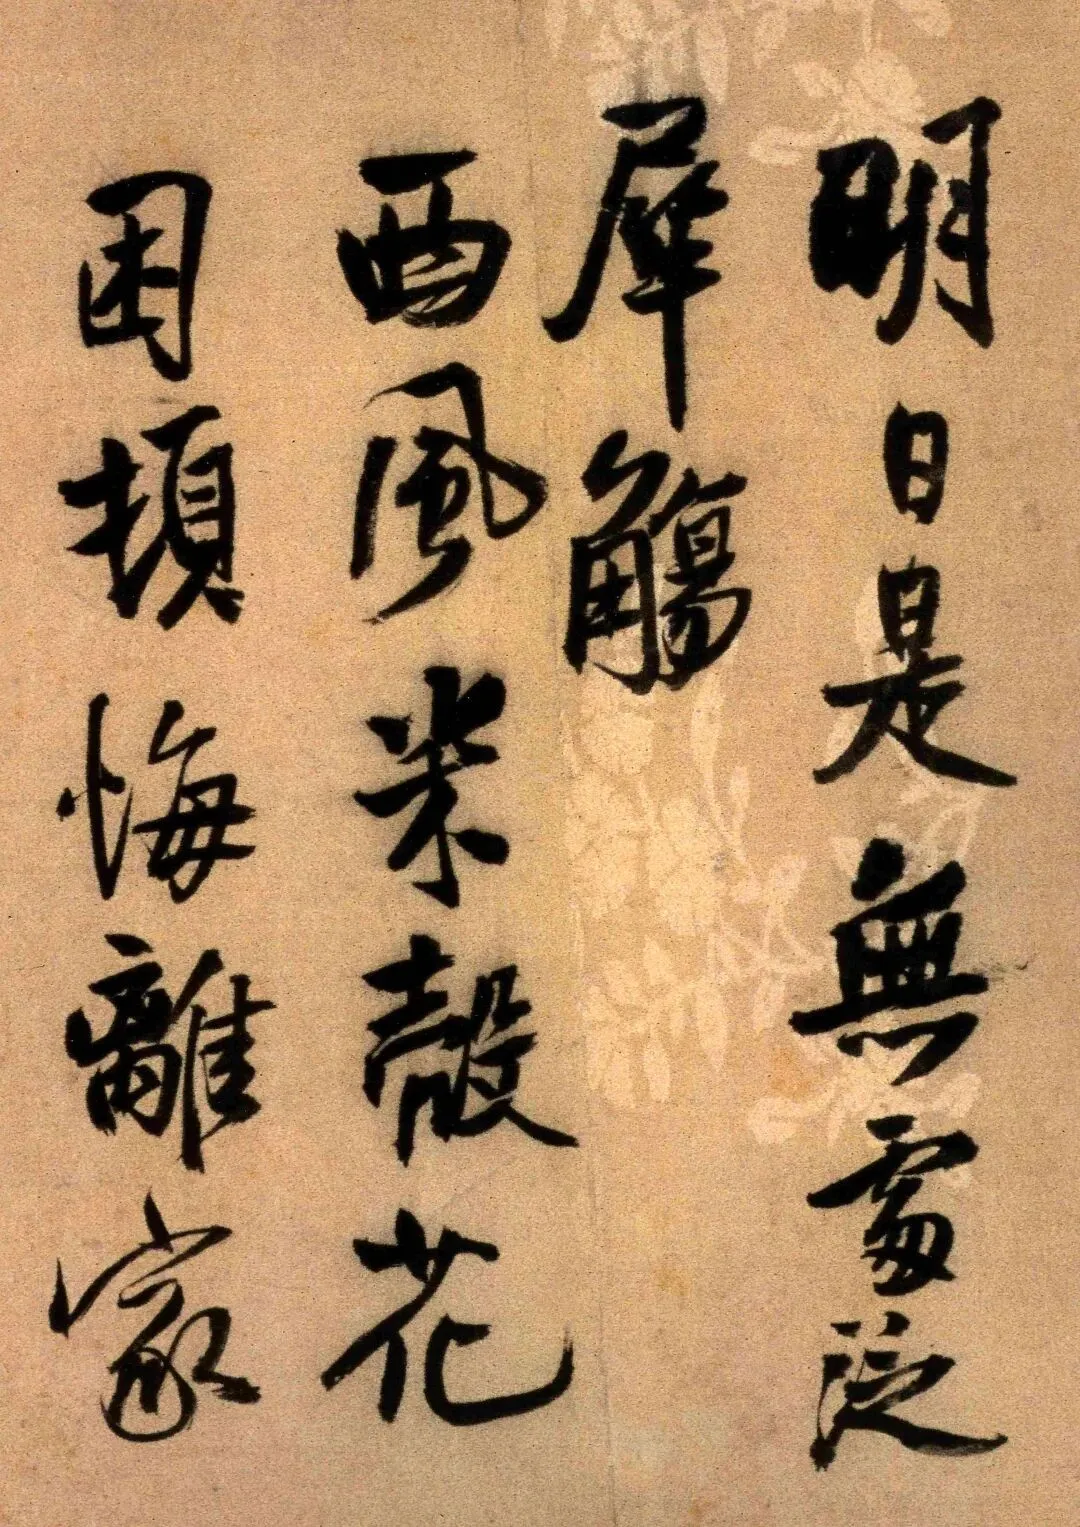 明日是無處泛
犀觴
西風米殼花
困頓悔離家